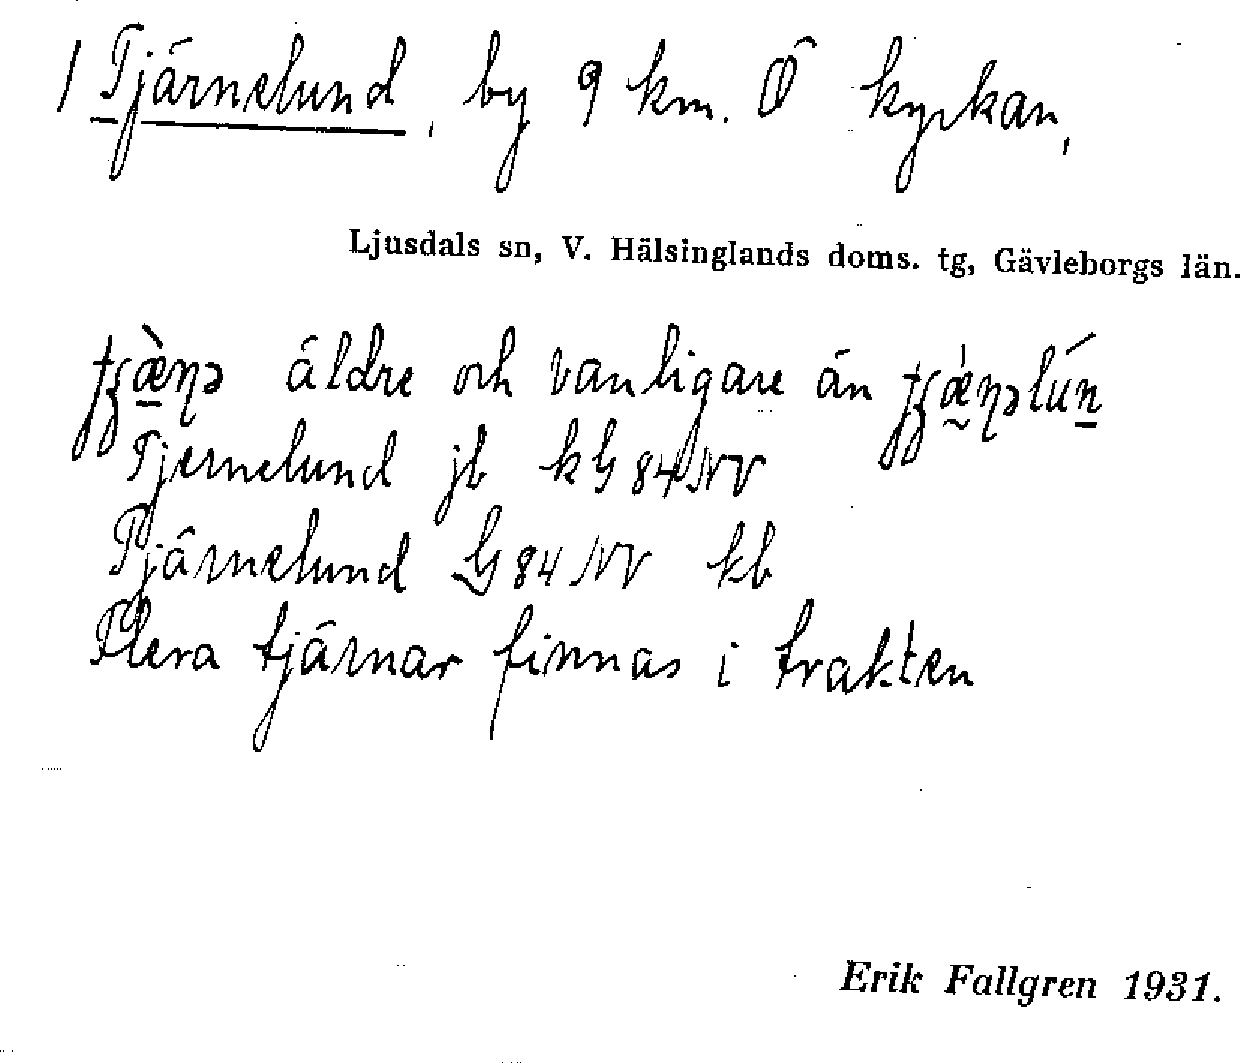 1 Tjärnelund, by 9 km. Ö kyrkan,
Ljusdals sn, V. Hälsinglands doms. tg, Gävleborgs län.
äldre och vanligare än
Tjernelund jb kG 84 NV
Tjärnelund G 84 NV kb
Flera tjärnar finnas i trakten
Erik Fallgren 1931.